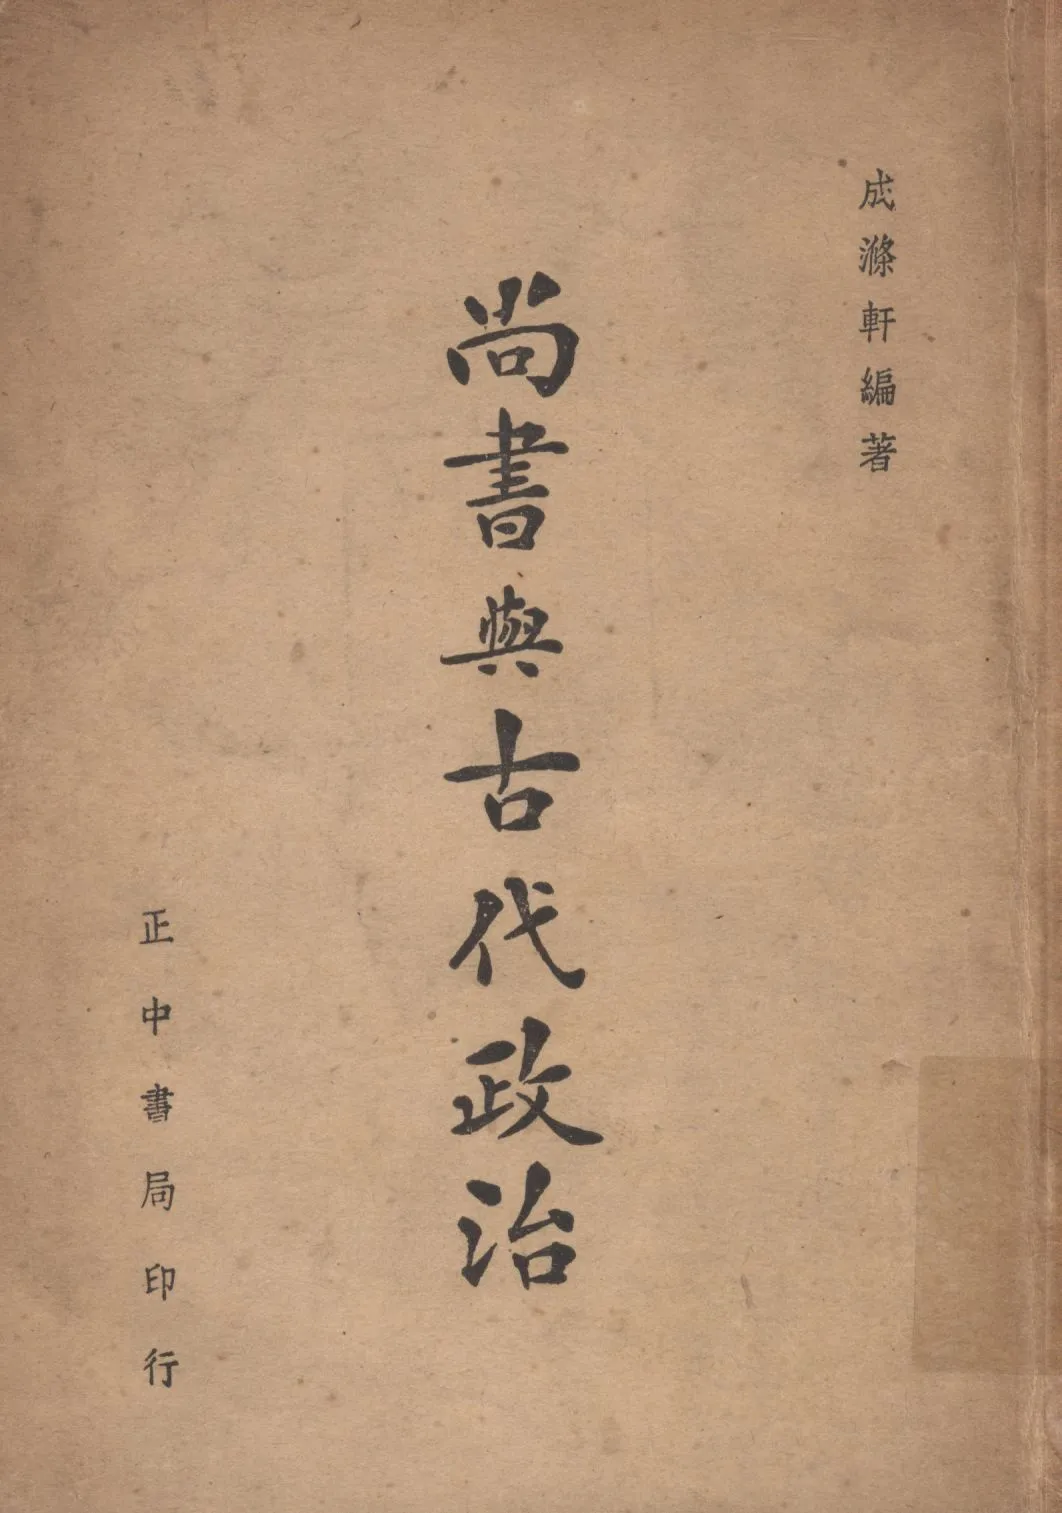 成滌軒編著
尚書與古代政治
正中書局印行